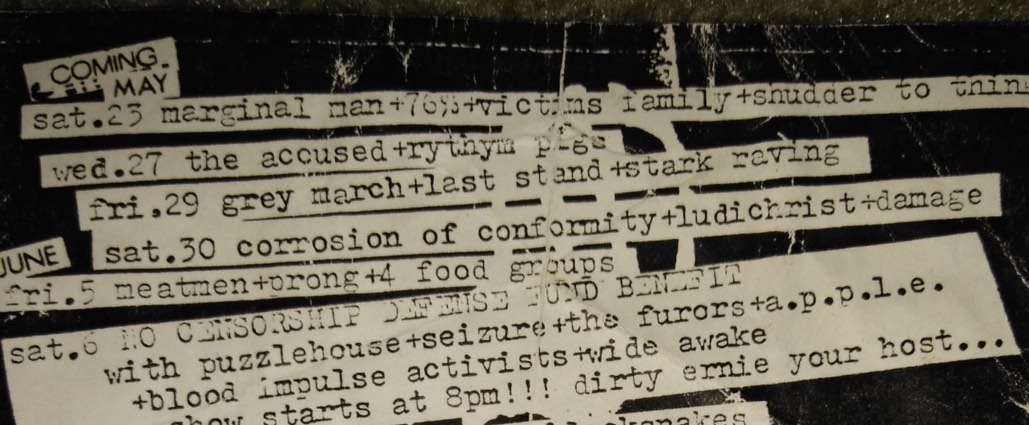 COMING.
MAY
sat.23 marginal man+76%+victims family+shudder to thin
wed.27 the accused+rythym pigs
fri.29 grey march+last stand+stark raving
sat.30 corrosion of conformity+ludichrist+damage
JUNE
fri.5 meatmen+prong+4 food groups
sat.6 NO CENSORSHIP DEFENSE FUND BENEFIT
with puzzlehouse+seizure+the furors+a.p.p.l.e.
+blood impulse activists+wide awake
show starts at 8pm!!! dirty ernie your host...